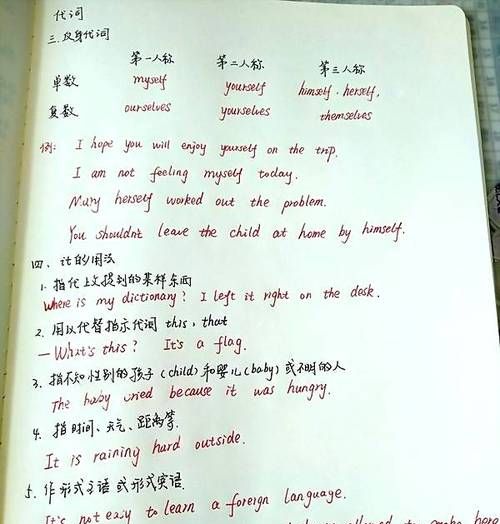 代词
三.反身代词
第一人称 第二人称 第三人称
单数 myself yourself himself . herself,
复数 ourselves yourselves themselves
例: I hope you will enjoy yourself on the trip.
I am not feeling myself today.
Mary herself worked out the problem.
You shouldn't leave the child at home by himself.
四、it的用法
1. 指代上文提到的某样东西
Where is my dictionary? I left it right on the desk.
2. 用以代替指示代词 this, that
— What's this? It's a flag.
3. 指不知性别的孩子(child)和婴儿(baby)或不明的人
The baby cried because it was hungry.
4. 指时间、天气、距离等.
It is raining hard outside.
5. 作形式主语或形式宾语.
It's not easy to learn a foreign language.
to make here